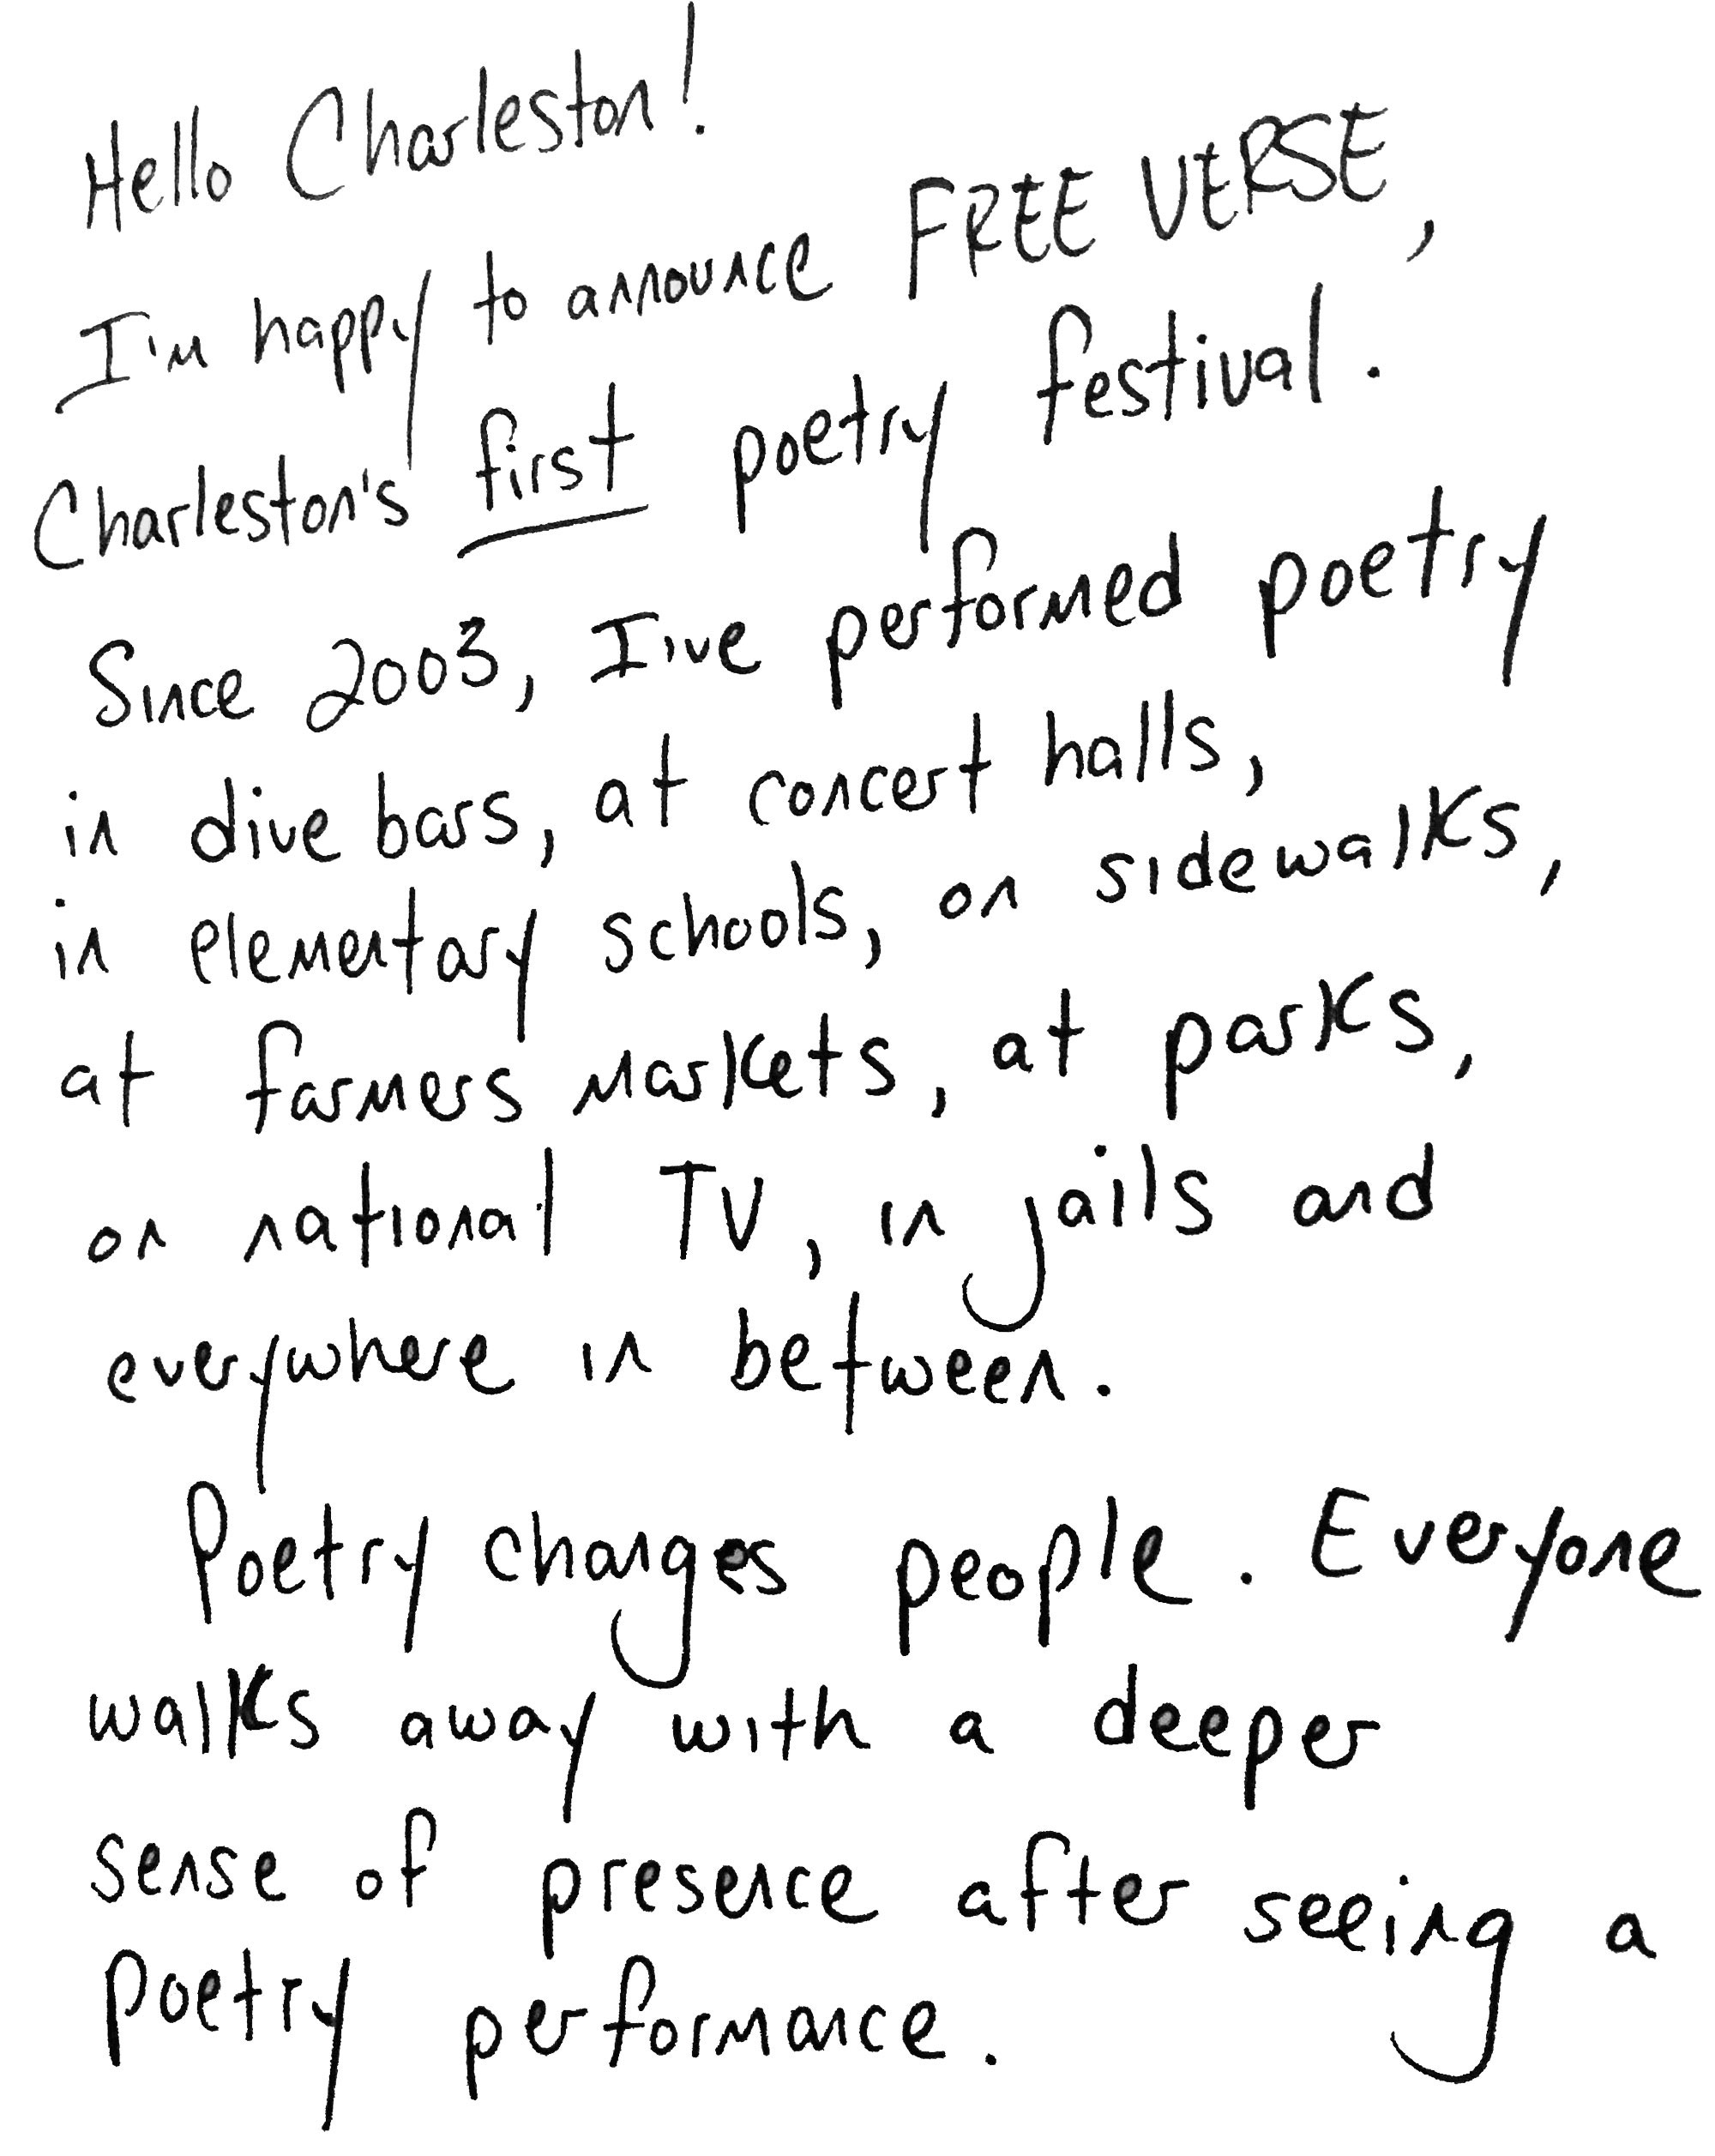 Hello Charleston!
I'm happy to announce FREE VERSE,
Charleston's first poetry festival.
Since 2003, I've performed poetry
in dive bars, at concert halls,
in elementary schools, on sidewalks,
at farmers markets, at parks,
on national TV, in jails and
everywhere in between.
Poetry changes people. Everyone
walks away with a deeper
sense of presence after seeing a
poetry performance.